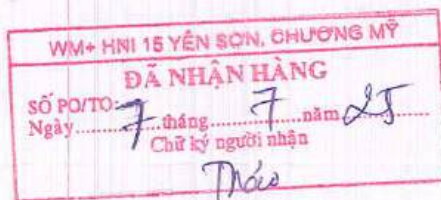 WM+ HNI 15 YÊN SƠN, CHƯƠNG MỸ
ĐÃ NHẬN HÀNG
SỐ PO/TO:
Ngày 7 tháng 7 năm 25
Chữ ký người nhận
Thảo